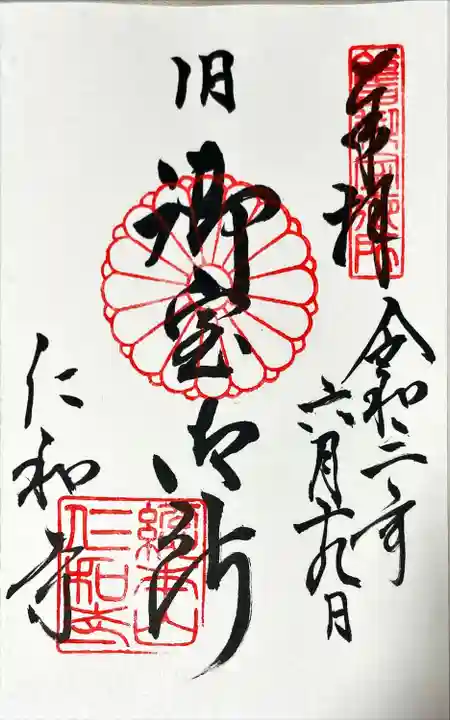 奉拝
令和二年
六月十九日
旧
御室御所
仁和寺
總本山
仁和寺